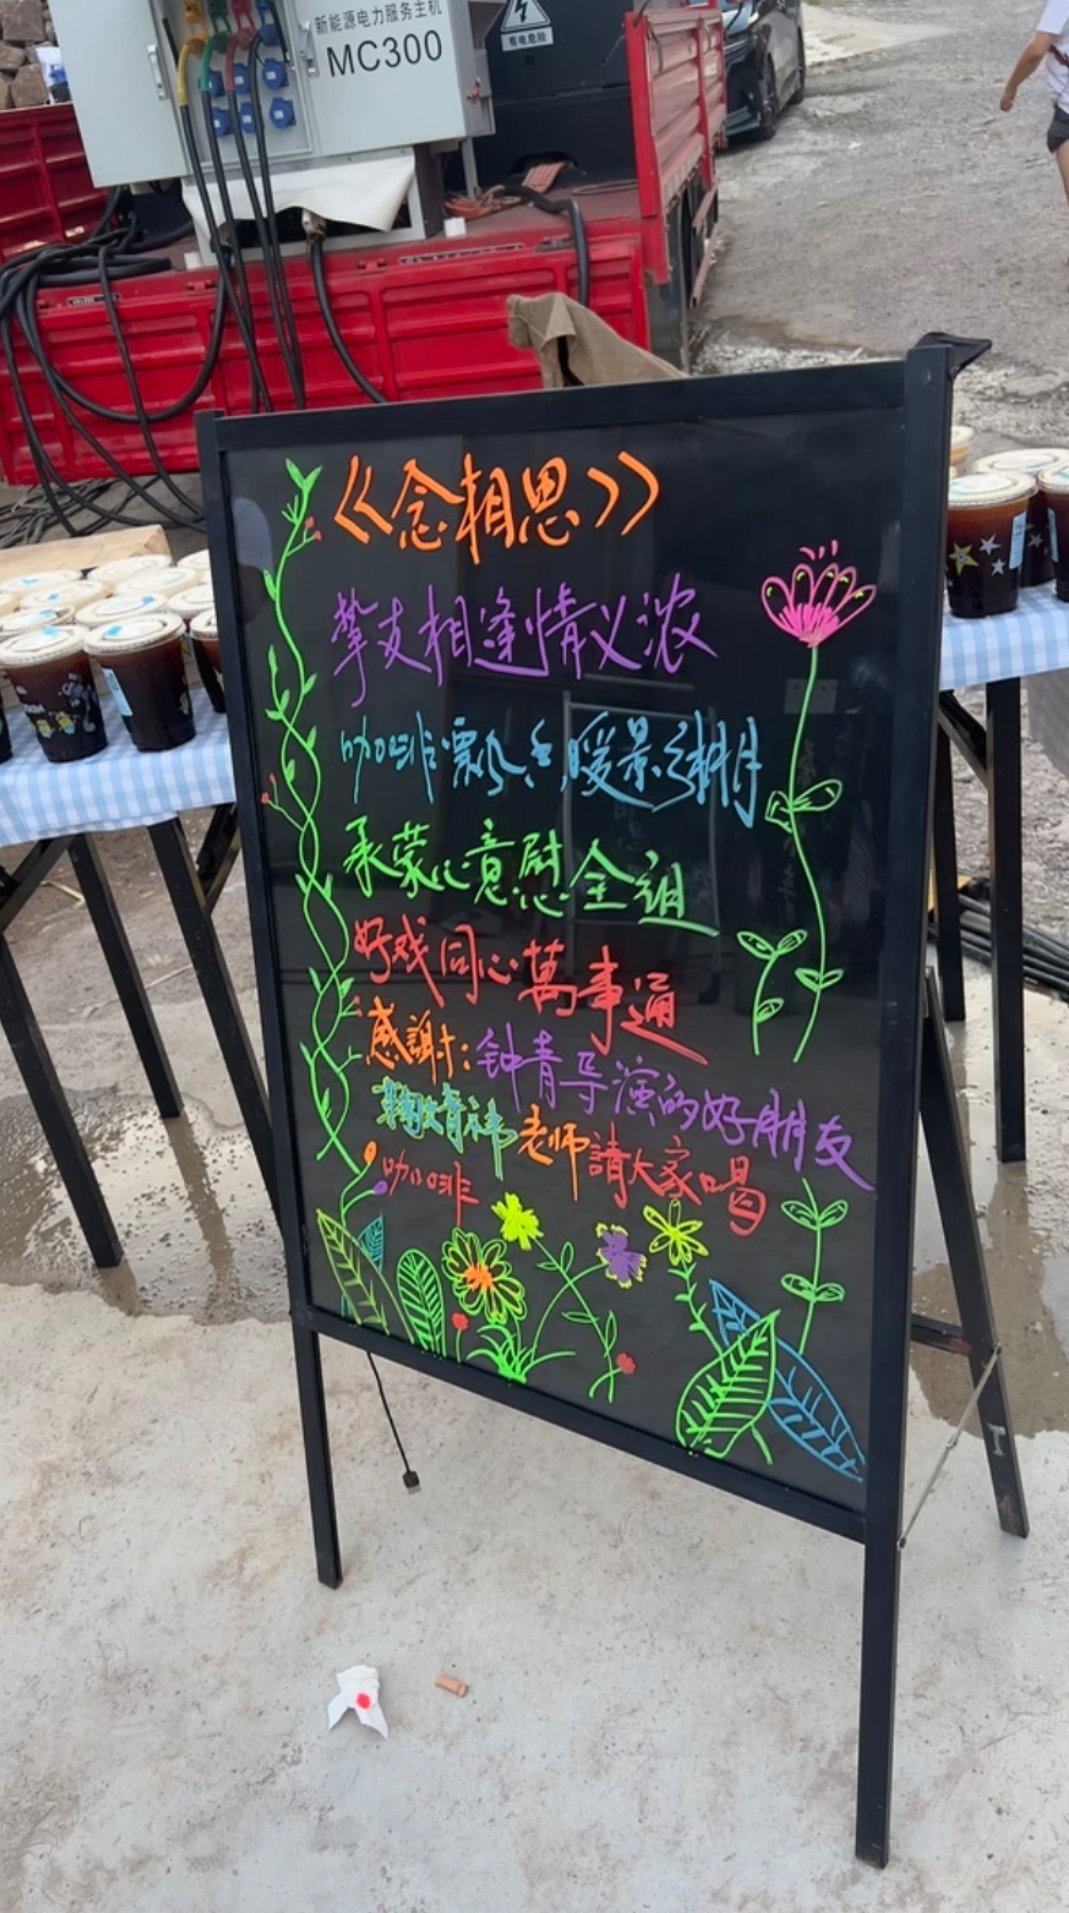 新能源电力服务主机
MC300
有电危险
《念相思》
挚友相逢情义浓
咖啡飘香暖景棚
承蒙心意慰全组
好戏同心萬事通
感謝：钟青导演的好朋友
老师請大家喝
咖啡